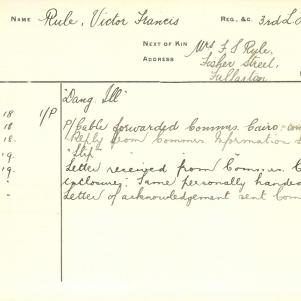 NAME Rule, Victor Francis REG., &C. 3rd L
NEXT OF KIN Mrs F S Ryle,
ADDRESS Fisher Street,
Fullarton
"Dang. Ill"
18 1/P
18 P/Cable forwarded Commns. Cairo
18. Reply from Commns. Information
19. "Slip"
19. Letter received from Commns. C
" enclosure. Same personally handed
" Letter of acknowledgement sent Com